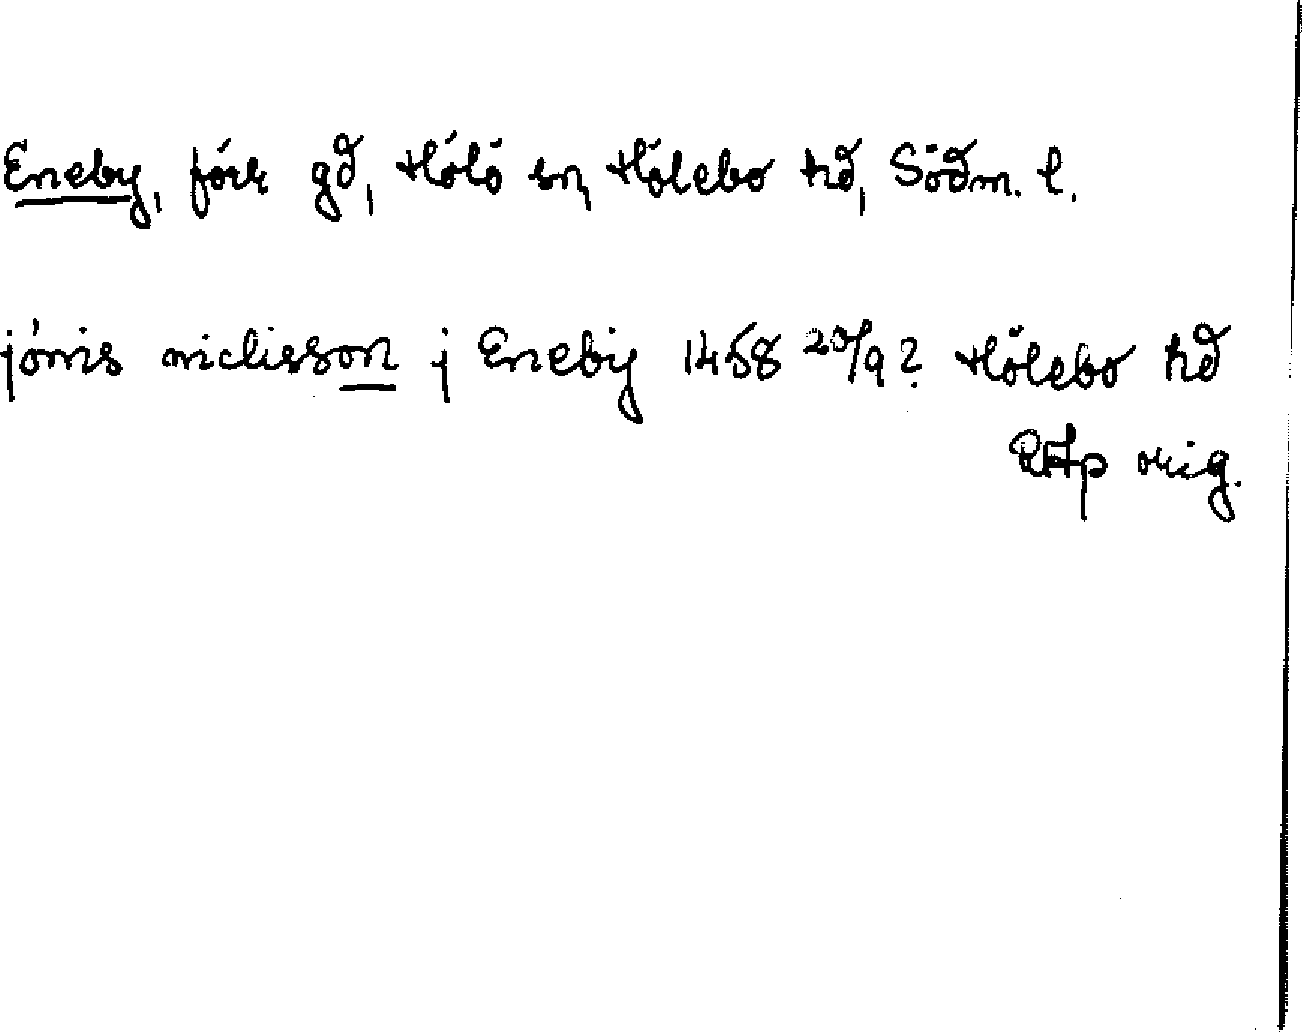 Eneby, förr gd, Hölö sn, Hölebo hd, Södm. l.
jönis niclisson j Eneby 1458 20/9? Hölebo hd
RAp orig.